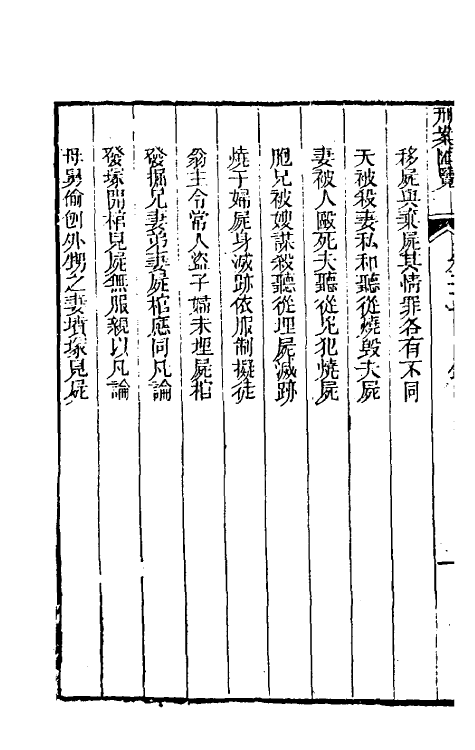 刑案匯覽
移屍與棄屍其情罪各有不同
夫被殺妻私和聽從燒毀夫屍
妻被人毆死夫聽從兇犯燒屍
胞兄被嫂謀殺聽從埋屍滅跡
燒子婦屍身滅跡依服制擬徒
翁主令常人盜子婦未埋屍棺
發掘兄妻弟妻屍棺應同凡論
發塚開棺見屍無服親以凡論
母舅偷刨外甥之妻墳塚見屍